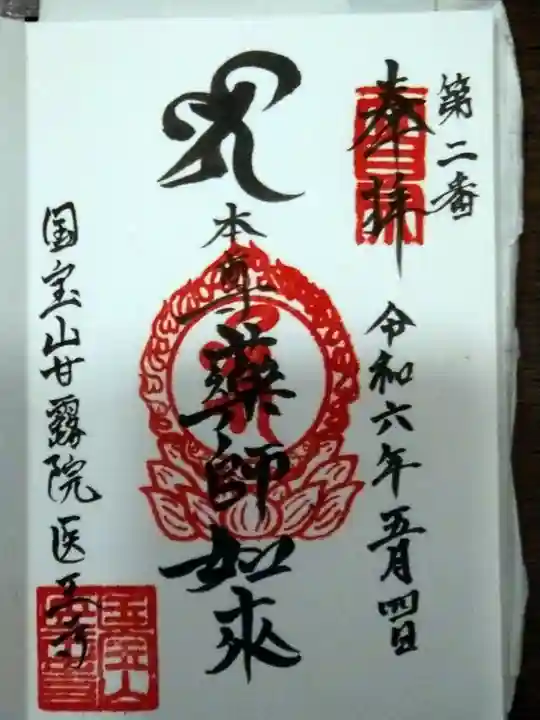 第二番
奉拝
令和六年五月四日
本尊薬師如来
国宝山甘露院医王寺